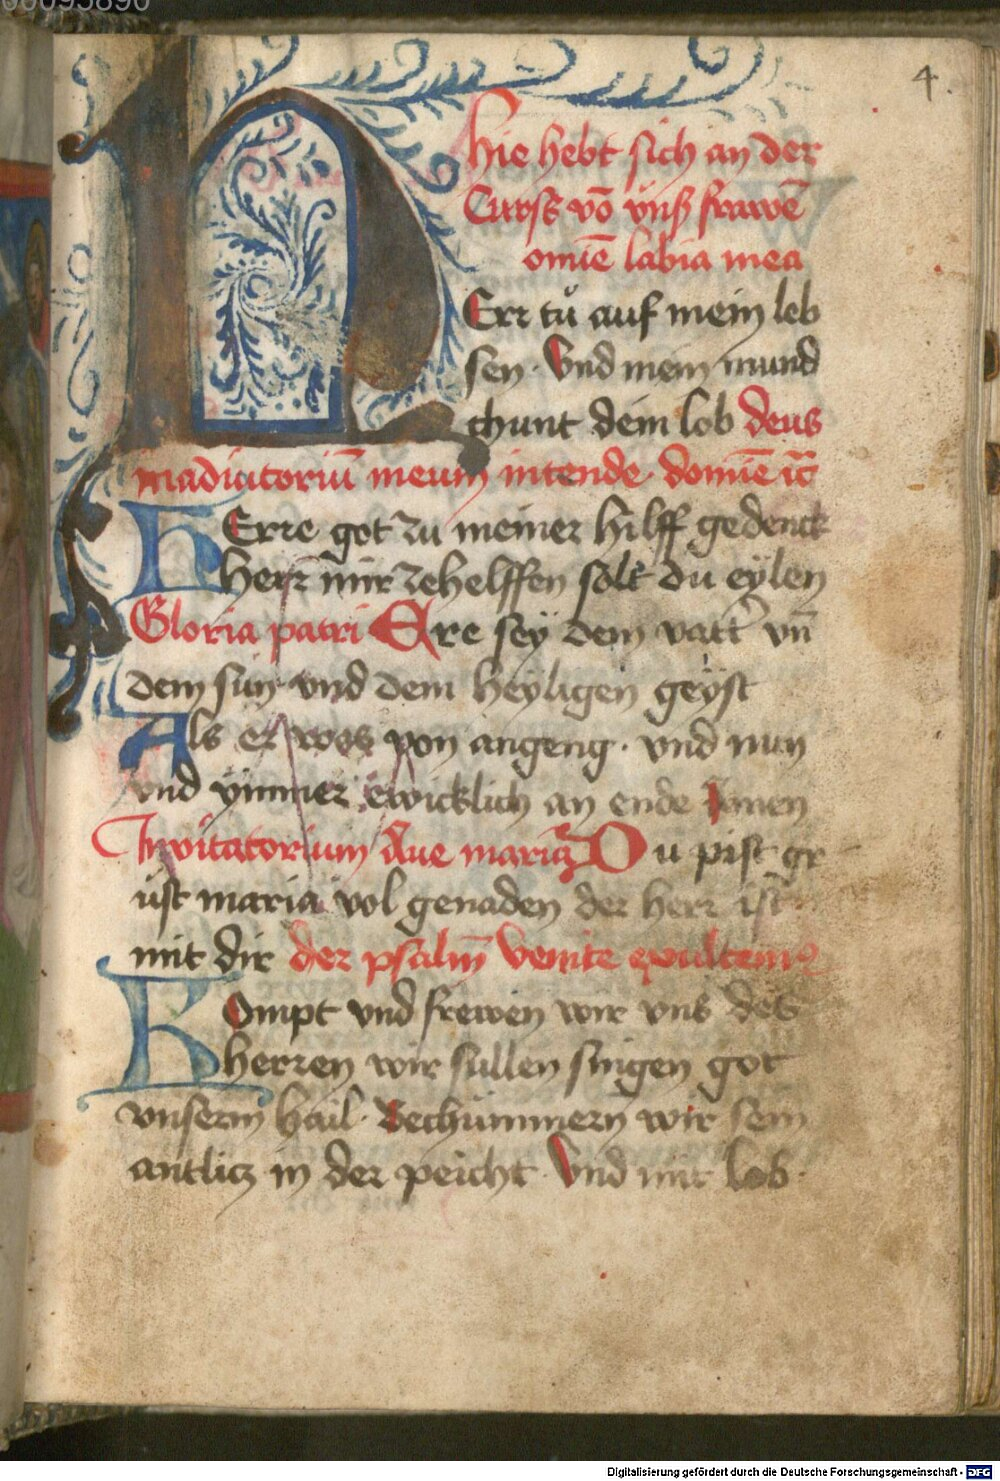 00095890
4.
hie hebt sich an der
Curss võ vnß frawẽ
omiẽ labia mea
HErr tuͦ auf mein leb
sen. Vnd mein mund
chunt dein lob deus
inadiutoriũ meum intende. domiẽ
HErre got zu meiner hilff gedenck
herr mir zehelffen solt du eylen
Gloria patri Ere seÿ dem vatt vñ
dem sun vnd dem heyligen geyst
Als er wos von angeng. vnd nun
vnd ymmer ewicklich an ende Amen
Inuitatorium Aue maria Du pist gr
ust maria vol genaden der herr ist
mit dir der psalm̃ Venite exultem
KOmpt vnd frewen wir vns des
herren wir sullen singen got
vnserm hail. Bechummern wir sein
antlicz in der peicht. Vnd mit lob.
Digitalisierung gefördert durch die Deutsche Forschungsgemeinschaft - DFG